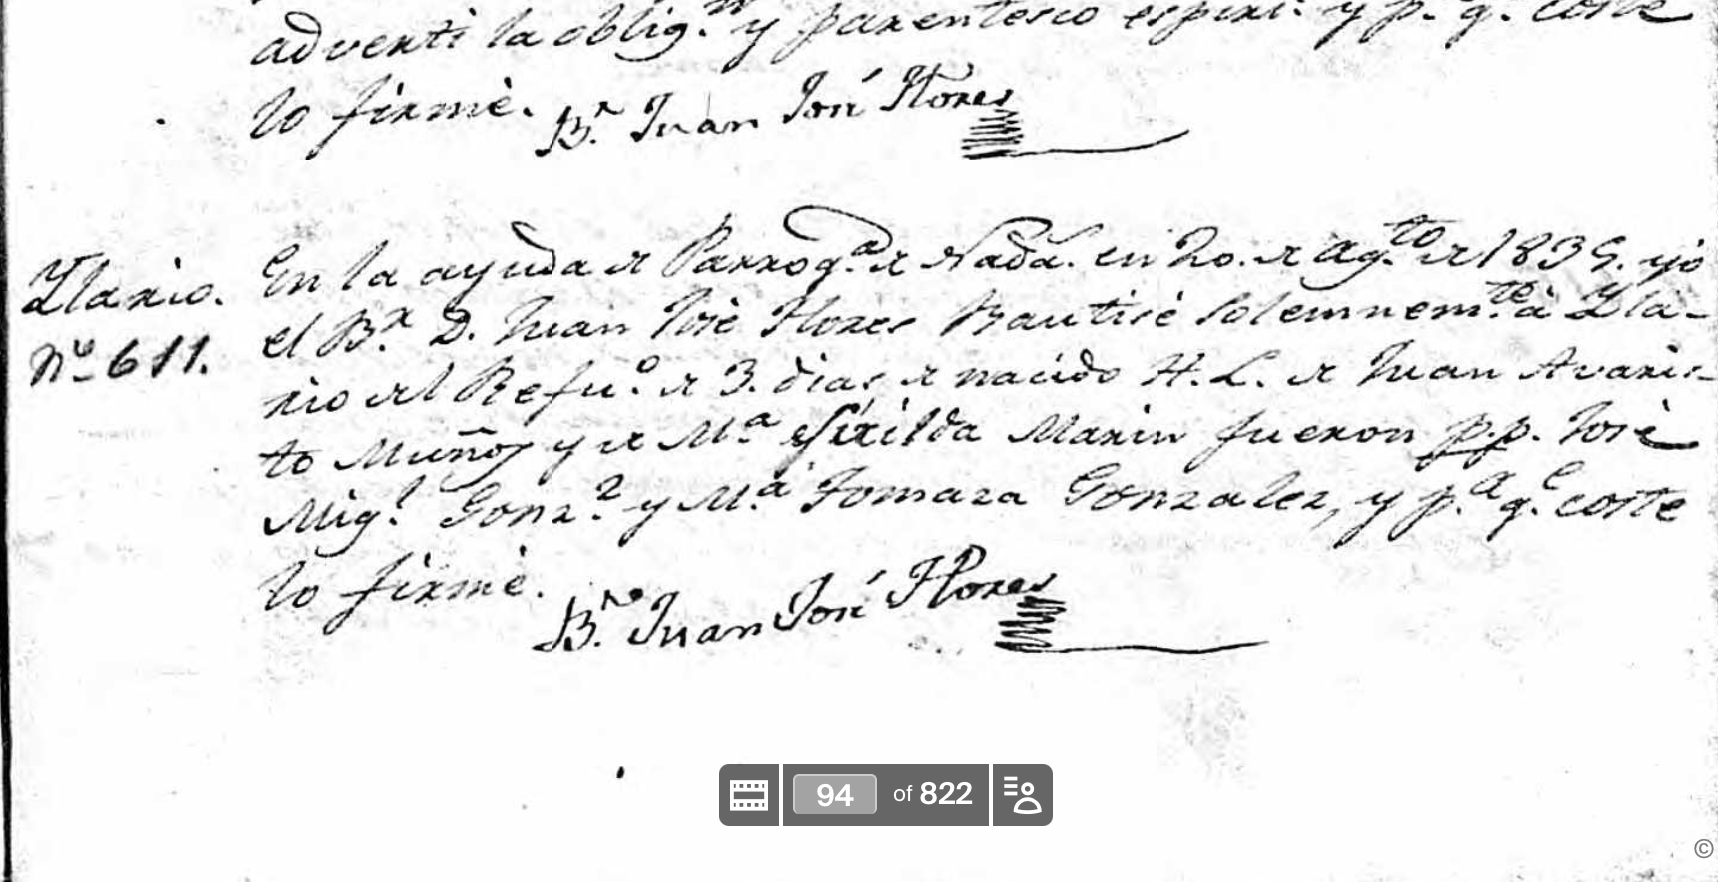 advertí la oblig.n y parentesco espiri.l y p.a q.e coste
lo firmé. B.r Juan José Flores
Ylario.
Nº 611.
En la ayuda de Parroq.a de Nada. en 20. de ag.to de 1835. yo
el B.r D. Juan José Flores Bautisé solemnem.te á Yla-
rio del Refu.o de 3. dias de nacido H. L. de Juan Avaris-
to Muñoz y de M.a Sirilda Marin fueron p.p. José
Mig.l Gonz.z y M.a Tomaza Gonzalez, y p.a q.e coste
lo firmé.
B.r Juan José Flores
94 of 822
©